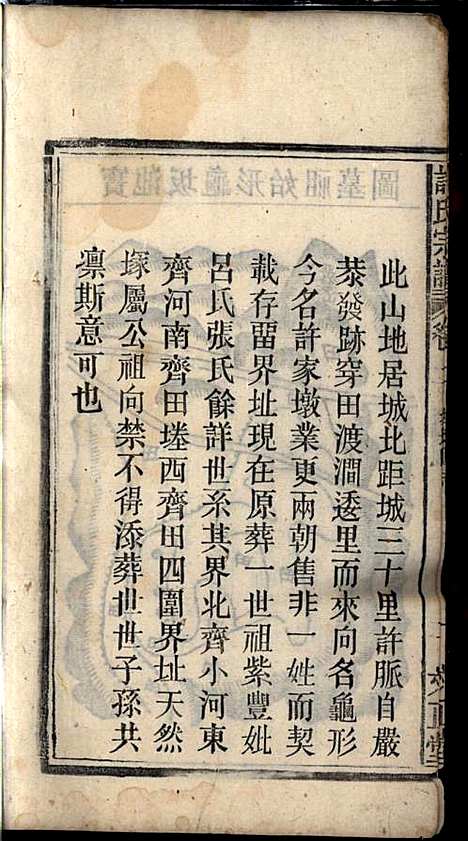 此山地居城北距城三十里許脈自嚴
恭發跡穿田渡澗逶里而來向名龜形
今名許家墩業更兩朝售非一姓而契
載存畱界址現在原葬一世祖紫豐妣
呂氏張氏餘詳世系其界北齊小河東
齊河南齊田塍西齊田四圍界址天然
塚屬公祖向禁不得添葬世世子孫共
凛斯意可也
許氏宗譜
圖墓祖始形龜坂池寶